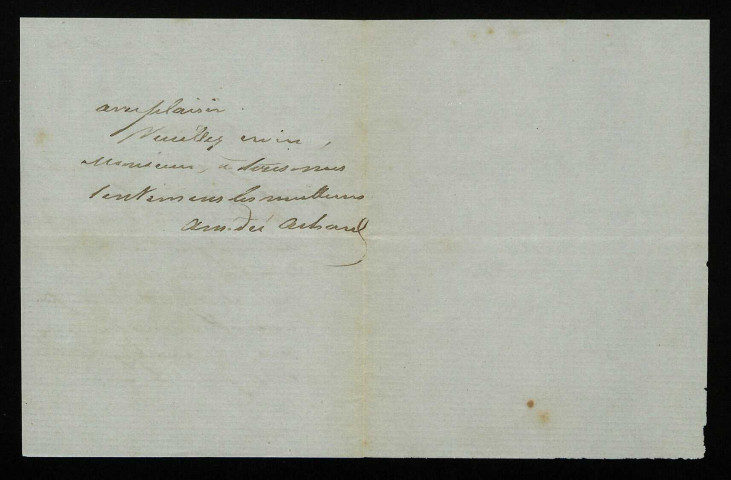 avec plaisir.
Veuillez croire,
Monsieur, à tous mes
sentimens les meilleurs
Amédée Achard